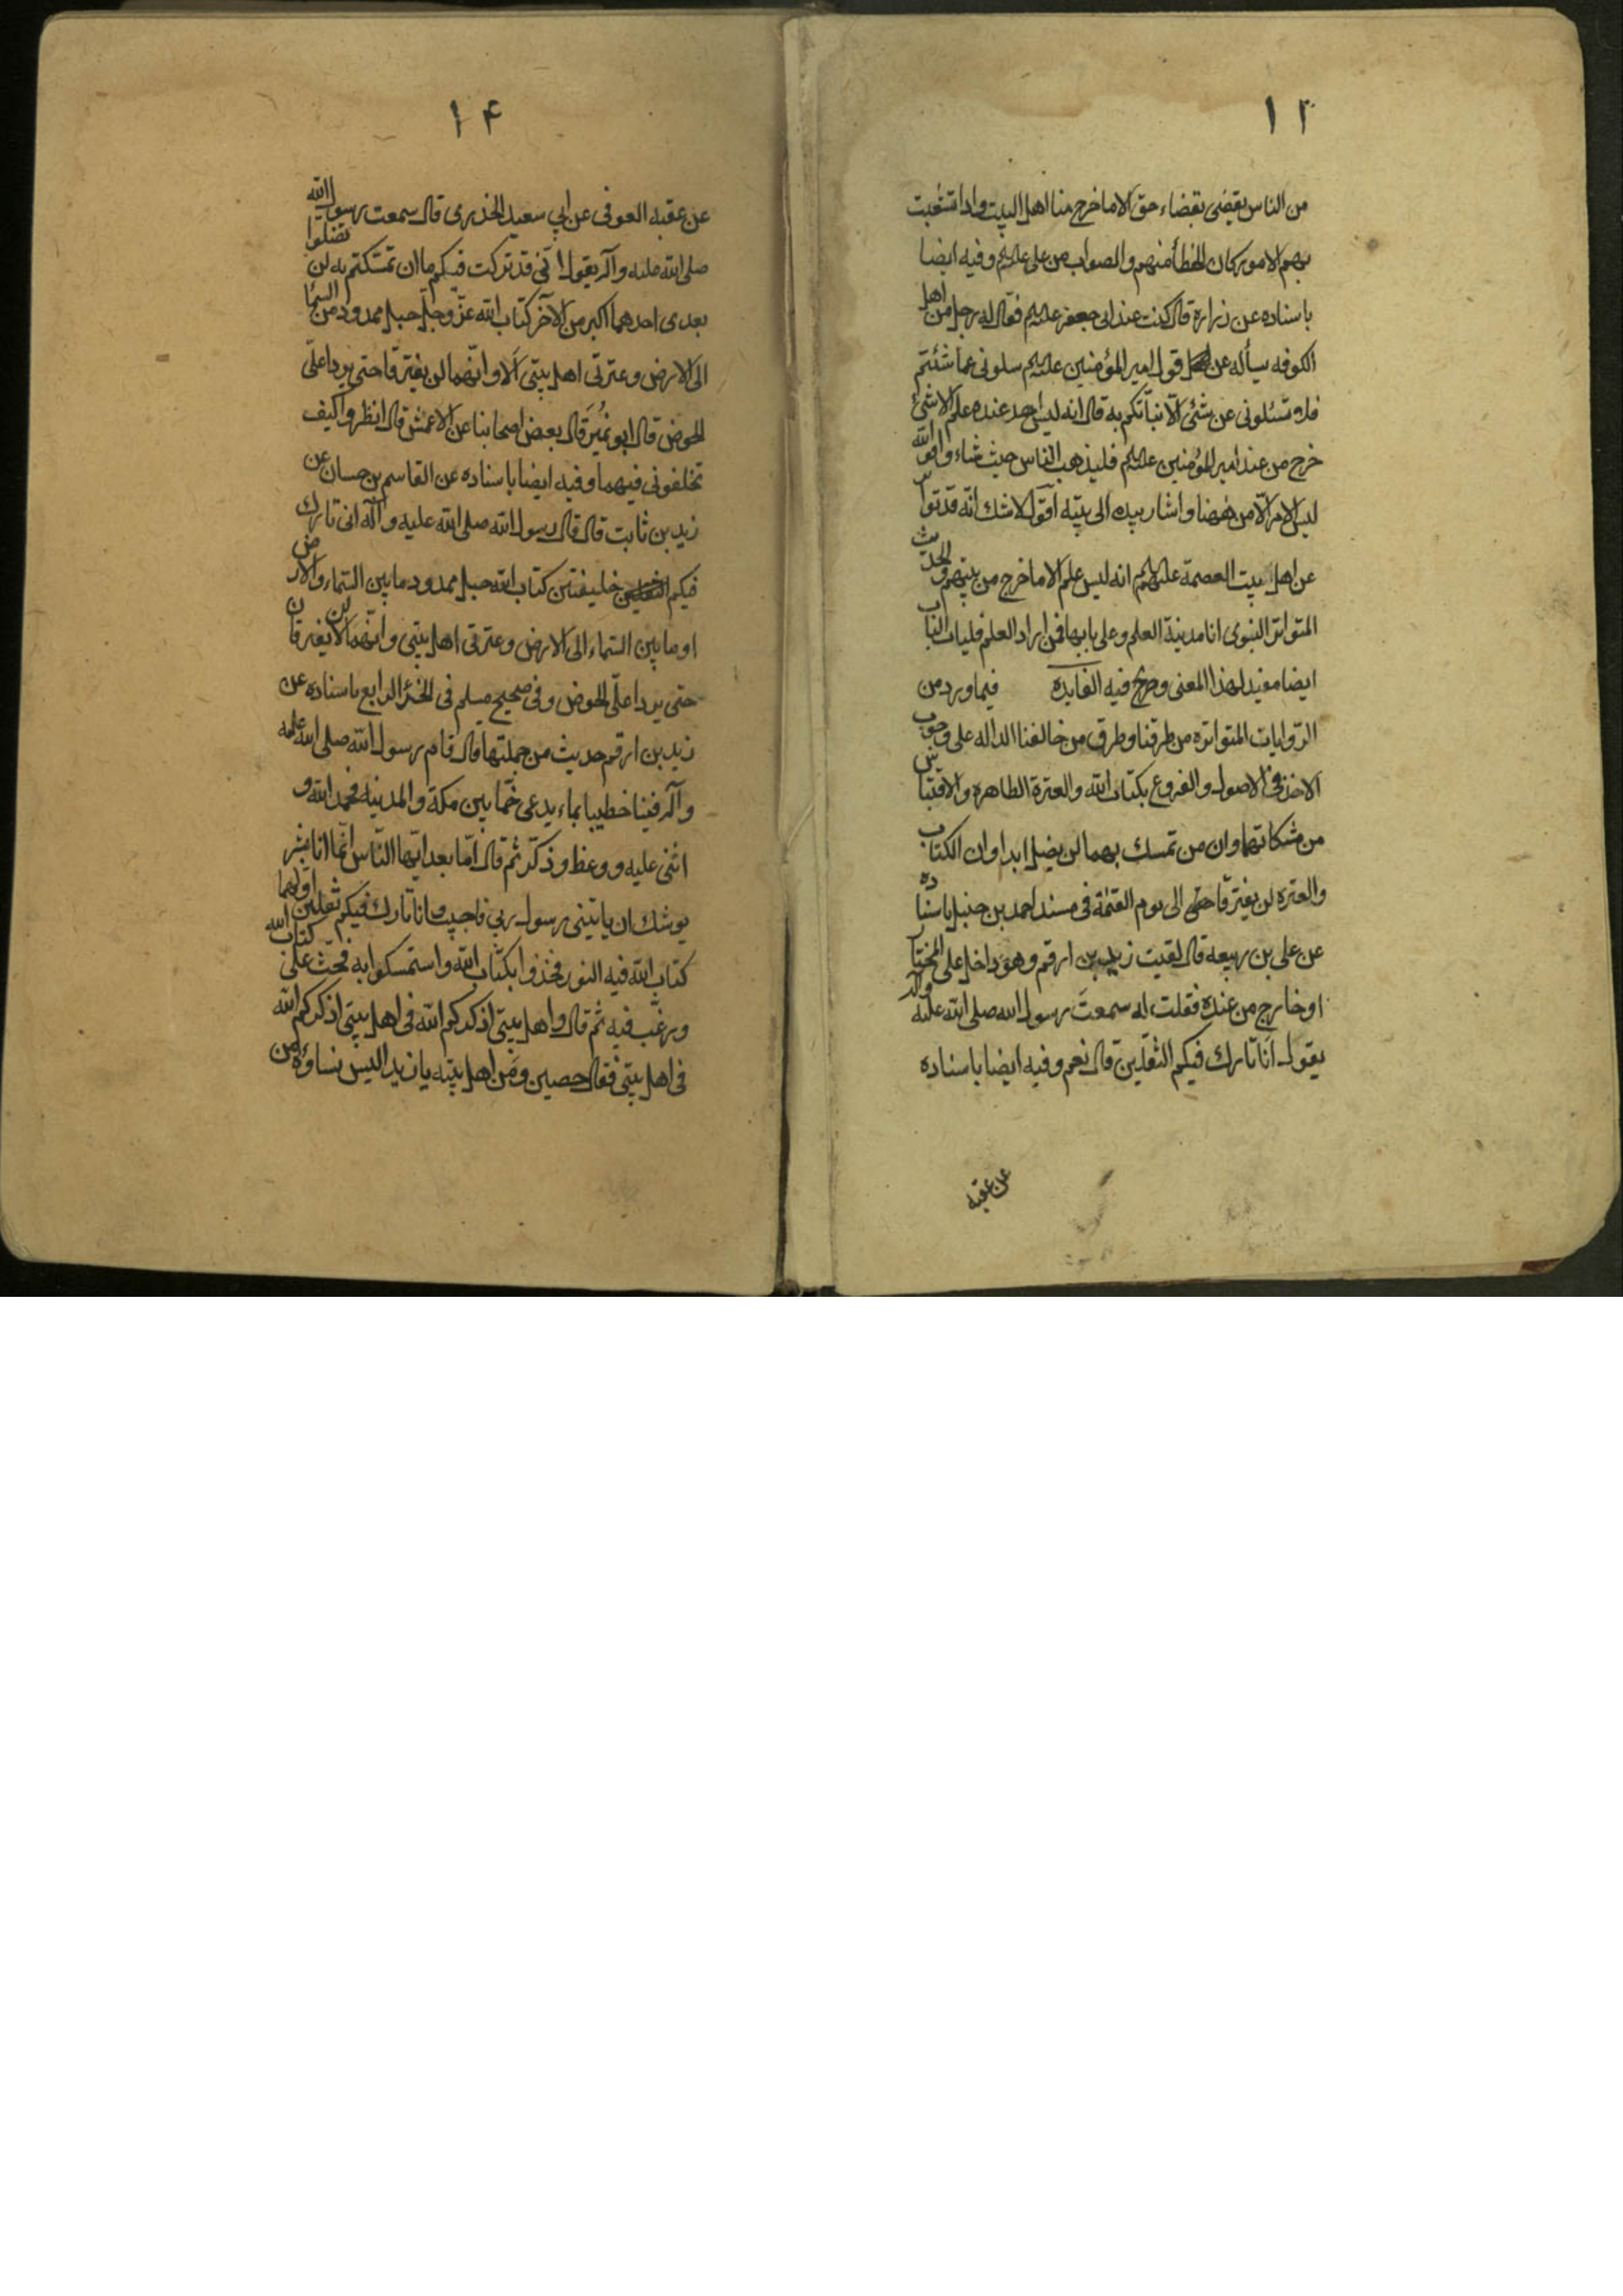 ۱۳
من الناس يقضى بقضاء حق الا ما خرج منا اهل البيت واذا تشعبت
بهم الامور كان الخطأ منهم والصواب من على عليهلم وفيه ايضا
باسناده عن زرارة قال كنت عند ابى جعفر عليهلم فقال له رجل من اهل
الكوفه يسأله عن قول امير المؤمنين عليهلم سلونى عما شئتم
فلا تسئلونى عن شئ الا نبأتكم به قال انه ليس احد عنده علم الا شئ
خرج من عند امير المؤمنين عليهلم فليذهب الناس حيث شاء وا فوالله
ليس الامر الا من ههنا واشار بيده الى بيته اقول لا شك انه قد تواتر
عن اهل بيت العصمة عليهلم انه ليس علم الا ما خرج من بيتهم والحديث
المتواتر النبوى انا مدينة العلم وعلى بابها فمن اراد العلم فليات الباب
ايضا مفيد لهذا المعنى وصريح فيه الفايده فيما ورد من
الروايات المتواتره من طرقنا وطرق من خالفنا الداله على وجوب
الاخذ فى الاصول والفروع بكتاب الله والعترة الطاهره والاقتباس
من مشكاتهما وان من تمسك بهما لن يضل ابدا وان الكتاب
والعتره لن يفترقا حتى الى يوم القيمة فى مسند احمد بن حنبل باسناده
عن على بن ربيعه قال لقيت زيد بن ارقم وهو داخل على المختار
او خارج من عنده فقلت له سمعت رسول الله صلى الله عليه وآله
يقول انا تارك فيكم الثقلين قال نعم وفيه ايضا باسناده
عن عقبه
۱۴
عن عقبه العوفى عن ابي سعيد الخذرى قال سمعت رسول الله
صلى الله عليه وآله يقول انى قد تركت فيكم ما ان تمسكتم به لن تضلوا
بعدى احدهما اكبر من الآخر كتاب الله عز وجل حبل ممدود من السما
الى الارض وعترتى اهل بيتى الا وانهما لن يفترقا حتى يردا على
الحوض قال ابو نمير قال بعض اصحابنا عن الاعمش قال انظروا كيف
تخلفونى فيهما وفيه ايضا باسناده عن القاسم بن حسان عن
زيد بن ثابت قال قال رسول الله صلى الله عليه وآله انى تارك
فيكم خليفتين كتاب الله حبل ممدود ما بين السماء والارض
او ما بين السماء الى الارض وعترتى اهل بيتى وانهما لن يفترقان
حتى يردا على الحوض وفى صحيح مسلم فى الجزء الرابع باسناده عن
زيد بن ارقم حديث من جملتها قال قام رسول الله صلى الله عليه
وآله فينا خطيبا بماء يدعى خما بين مكة والمدينه فحمد الله و
اثنى عليه ووعظ وذكر ثم قال اما بعد ايها الناس انما انا بشر
يوشك ان ياتينى رسول ربى فاجيب وانا تارك فيكم ثقلين اولهما
كتاب الله فيه النور فخذوا بكتاب الله واستمسكوا به فحث على كتاب الله
ورغب فيه ثم قال واهل بيتى اذكركم الله فى اهل بيتى اذكركم الله
فى اهل بيتى فقال حصين ومن اهل بيته يا زيد اليس نساؤه من